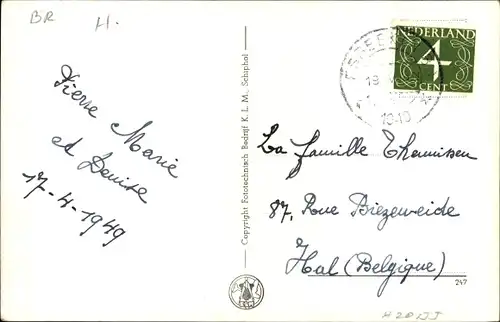 BR H.
NEDERLAND
4
CENT
19
10-10
Pierre Marie
et Denise
17-4-1949
Copyright Fototechnisch Bedrijf K. L. M., Schiphol
La famille Themissen
87, Rue Biezeweide
Hal (Belgique)
247